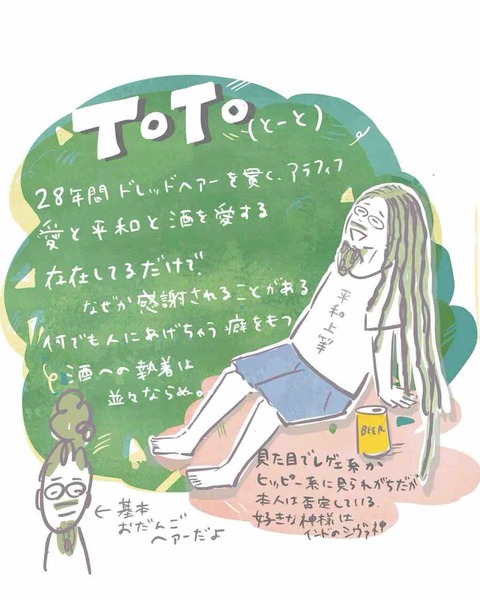 ToTo (とーと)
28年間ドレッドヘアーを貫く、アラフィフ
愛と平和と酒を愛する
存在してるだけで、
なぜか感謝されることがある
何でも人にあげちゃう癖をもつ
酒への執着は
並々ならぬ。
平和上等
BEER
見た目でレゲエ系か
ヒッピー系に見られがちだが
本人は否定している
好きな神様は
インドのシヴァ神
←基本
おだんご
ヘアーだよ